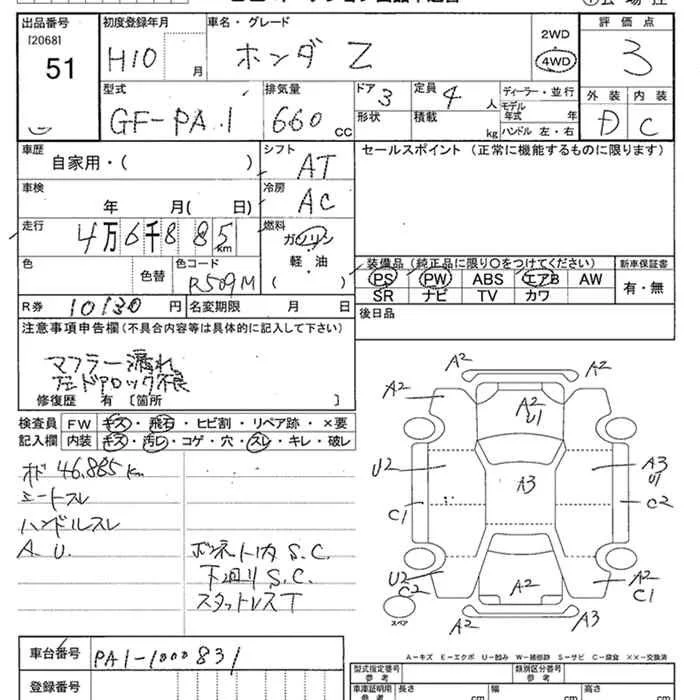 出品番号
[2068]
51
初度登録年月
H10 月
車名・グレード
ホンダ Z
2WD
4WD
評価点
3
型式
GF-PA1
排気量
660 CC
ドア 3
形状
定員 4 人
積載 kg
ディーラー・並行
モデル年式 年
ハンドル 左・右
外装 内装
D C
車歴
自家用・( )
シフト
AT
セールスポイント (正常に機能するものに限ります)
車検
年 月( 日)
冷房
AC
走行
4万6千885km
燃料
ガソリン
軽・油
( )
色
色替
色コード
R509M
装備品 (純正品に限り○をつけてください)
PS PW ABS エアB AW
SR ナビ TV カワ
新車保証書
有・無
R券 10130 円
名変期限 月 日
後日品
注意事項申告欄(不具合内容等は具体的に記入して下さい)
マフラー漏れ
ドアロック不良
修復歴 有 〔箇所 〕
検査員記入欄
FW キズ・飛石・ヒビ割・リペア跡・×要
内装 キズ・汚レ・コゲ・穴・スレ・キレ・破レ
オド 46.885km
シートスレ
ハンドルスレ
A U.
ボンネット内 S.C.
下廻り S.C.
スタットレスT
A2
A2
A2
A2
A2
U1
U2
A3
A3
U1
C1
C2
U2
C2
A2
A2
C1
スペア
A2
A3
A-キズ E-エクボ U-凹み W-補修跡 S-サビ C-腐食 ××-交換済
車台番号
PA1-1000831
登録番号
型式指定番号
参考
類別区分番号
参考
車庫証明用
参考
長さ cm
幅 cm
高さ cm